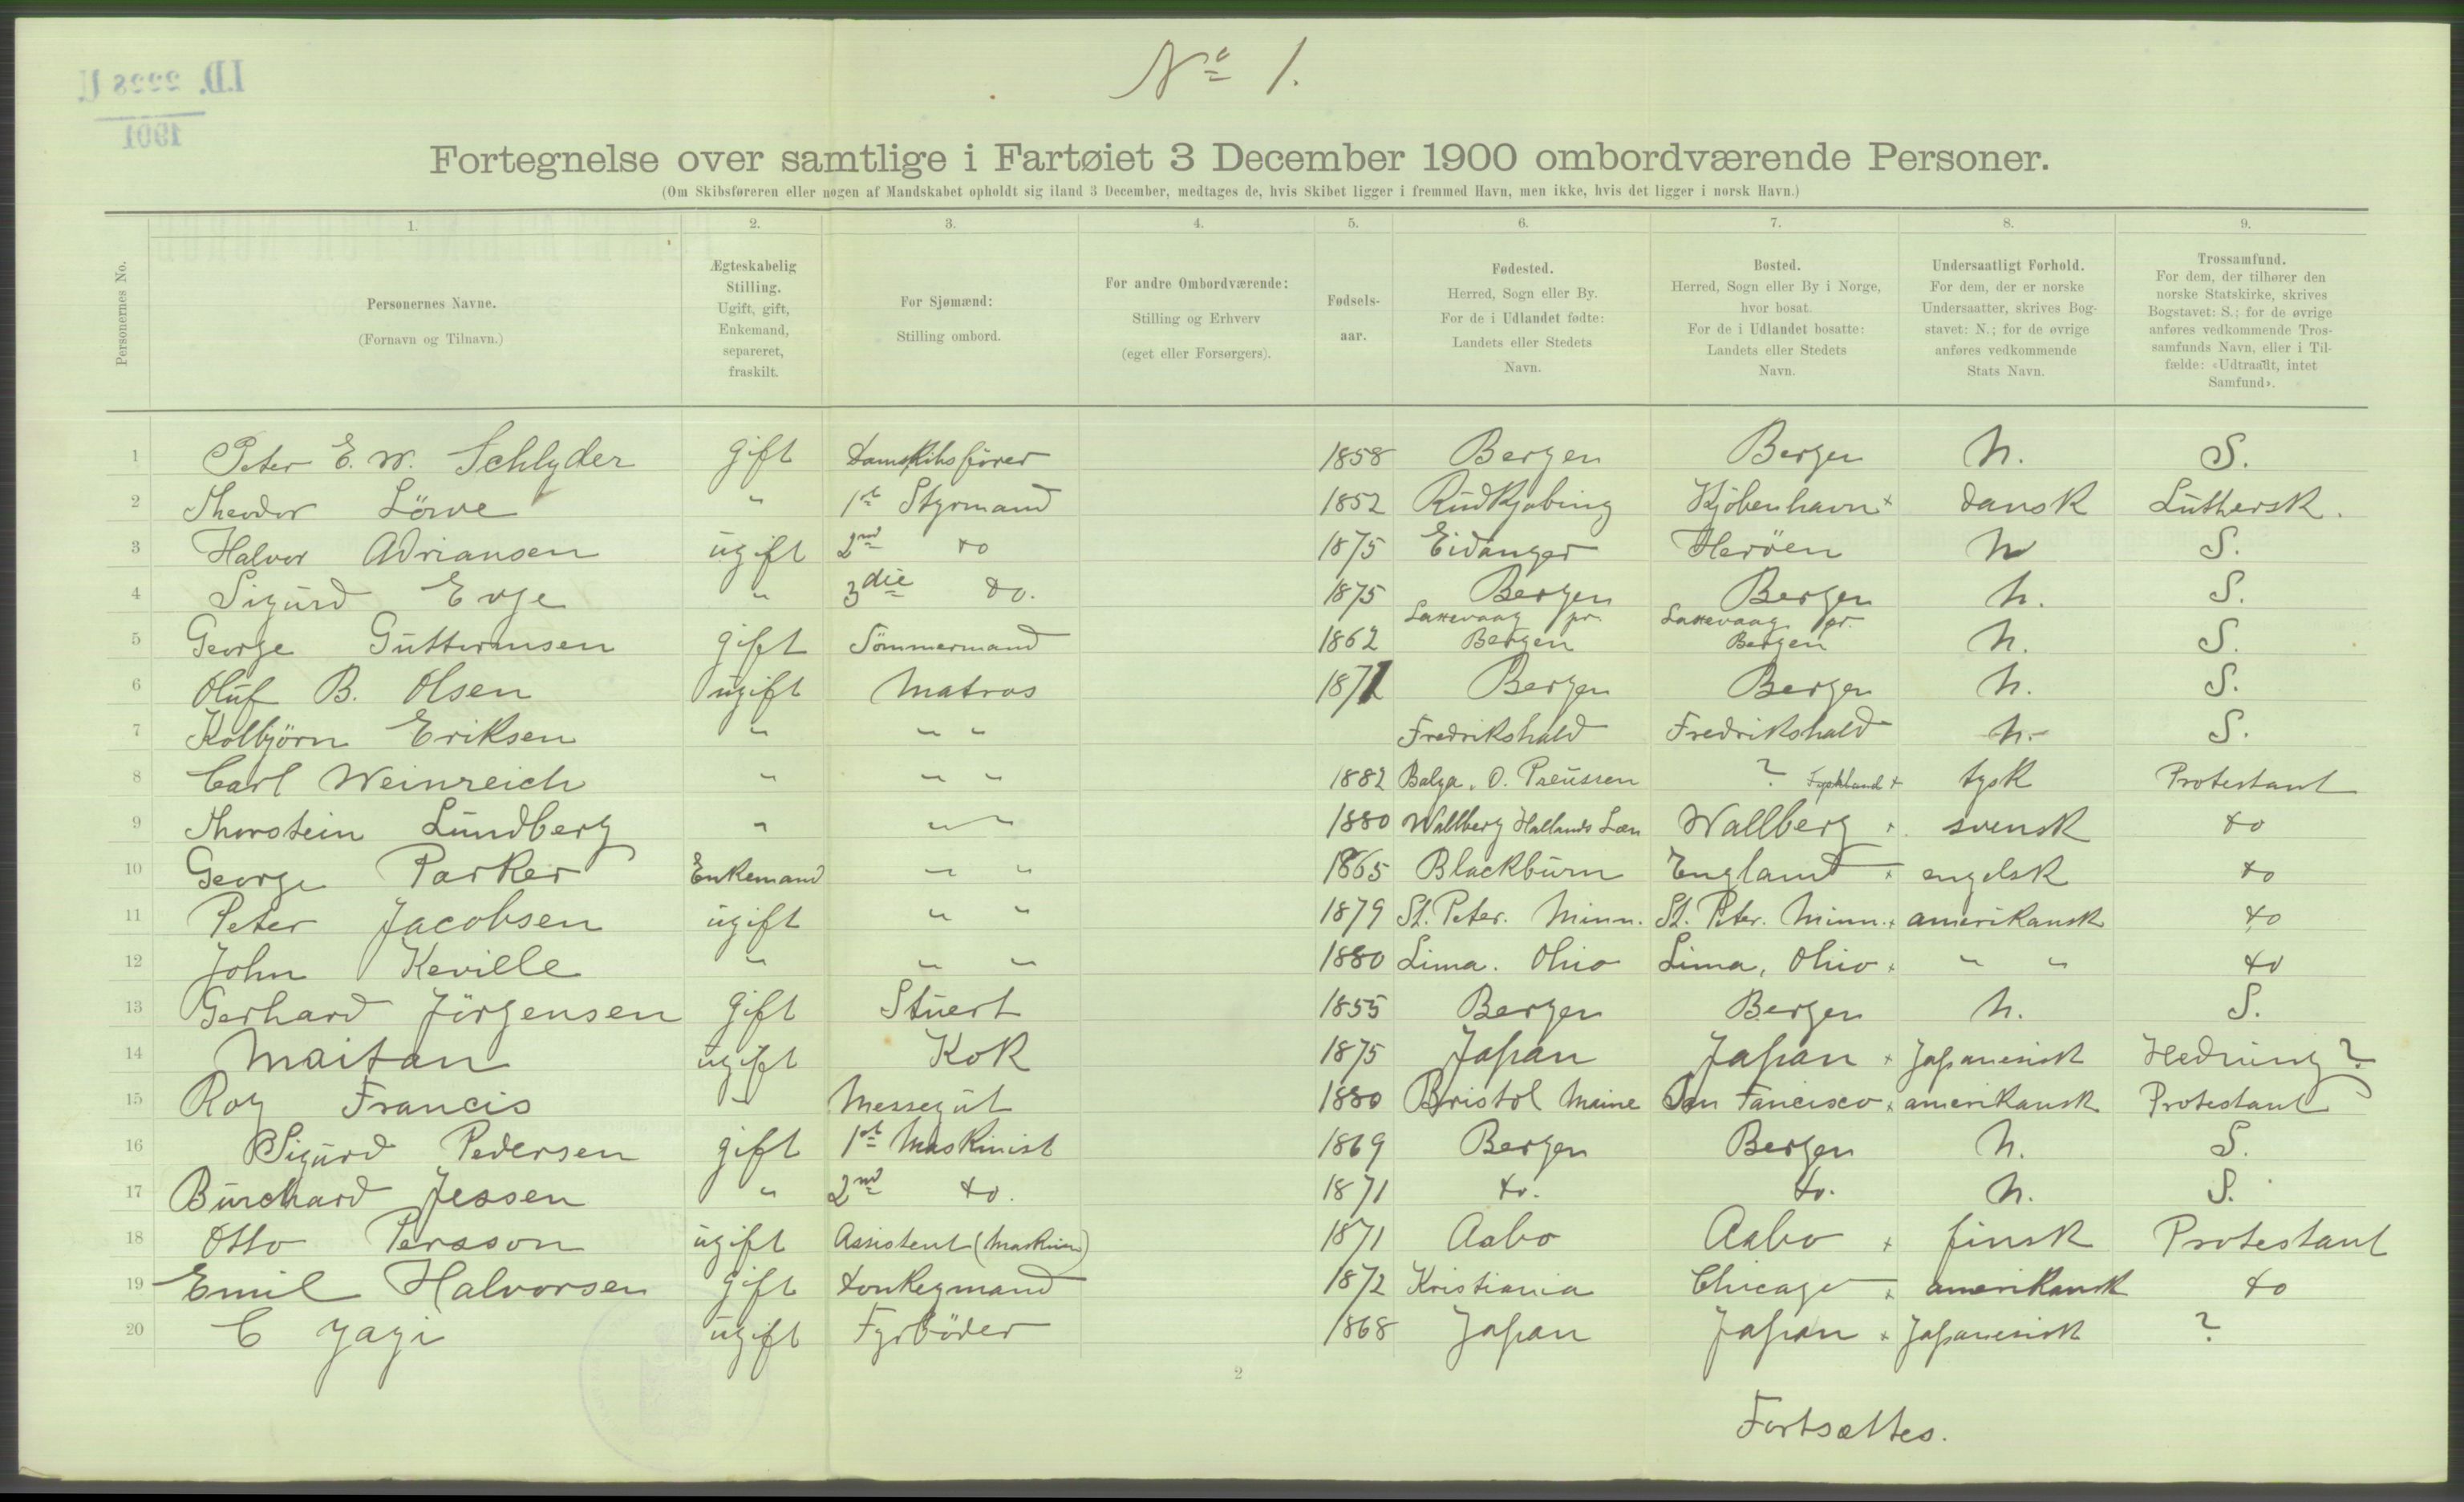 No 1.
I.D. 2228 U
1901
Fortegnelse over samtlige i Fartøiet 3 December 1900 ombordværende Personer.
(Om Skibsføreren eller nogen af Mandskabet opholdt sig iland 3 December, medtages de, hvis Skibet ligger i fremmed Havn, men ikke, hvis det ligger i norsk Havn.)
Personernes No.
1.
Personernes Navne.
(Fornavn og Tilnavn.)
2.
Ægteskabelig
Stilling.
Ugift, gift,
Enkemand,
separeret,
fraskilt.
3.
For Sjømænd:
Stilling ombord.
4.
For andre Ombordværende:
Stilling og Erhverv
(eget eller Forsørgers).
5.
Fødsels-
aar.
6.
Fødested.
Herred, Sogn eller By.
For de i Udlandet fødte:
Landets eller Stedets
Navn.
7.
Bosted.
Herred, Sogn eller By i Norge,
hvor bosat.
For de i Udlandet bosatte:
Landets eller Stedets
Navn.
8.
Undersaatligt Forhold.
For dem, der er norske
Undersaatter, skrives Bog-
stavet: N.; for de øvrige
anføres vedkommende
Stats Navn.
9.
Trossamfund.
For dem, der tilhører den
norske Statskirke, skrives
Bogstavet: S.; for de øvrige
anføres vedkommende Tros-
samfunds Navn, eller i Til-
fælde: «Udtraadt, intet
Samfund».
1 Peter E. W. Schlyder gift Damskibsförer 1858 Bergen Bergen N. S.
2 Theodor Löwe " 1st Styrmand 1852 Rudkjøbing Kjöbenhavn + dansk Luthersk.
3 Halvor Adriansen ugift 2nd do 1875 Eidanger Heröen N S.
4 Sigurd Evje " 3die do. 1875 Bergen Bergen N. S.
5 George Guttormsen gift Tömmermand 1862 Laxevaag pr. Bergen Laxevaag pr. Bergen N. S.
6 Oluf B. Olsen ugift Matros 1871 Bergen Bergen N. S.
7 Kolbjörn Eriksen " " " Fredrikshald Fredrikshald N. S.
8 Carl Weinreich " " " 1882 Balga. O. Preussen ? Tyskland + tysk Protestant
9 Thorstein Lundberg " " " 1880 Wallberg Hallands Læn Wallberg + svensk do
10 George Parker Enkemand " " 1865 Blackburn England + engelsk do
11 Peter Jacobsen ugift " " 1879 St. Peter. Minn. St. Peter. Minn. + amerikansk do
12 John Keville " " " 1880 Lima. Ohio Lima, Ohio + " " do
13 Gerhard Jörgensen gift Stuert 1855 Bergen Bergen N. S.
14 Maitan ugift Kok 1875 Japan Japan + Japanesisk Hedning?
15 Roy Francis " Messegut 1880 Bristol Maine San Fancisco + amerikansk Protestant
16 Sigurd Pedersen gift 1st Maskinist 1869 Bergen Bergen N. S.
17 Burchard Jessen " 2nd do. 1871 do. do. N. S.
18 Otto Persson ugift Assistent (Maskinen) 1871 Aabo Aabo + finsk Protestant
19 Emil Halvorsen gift Donkeymand 1872 Kristiania Chicago + amerikansk do
20 C Yagi ugift Fyrböder 1868 Japan Japan + Japanesisk ?
2
Fortsættes.